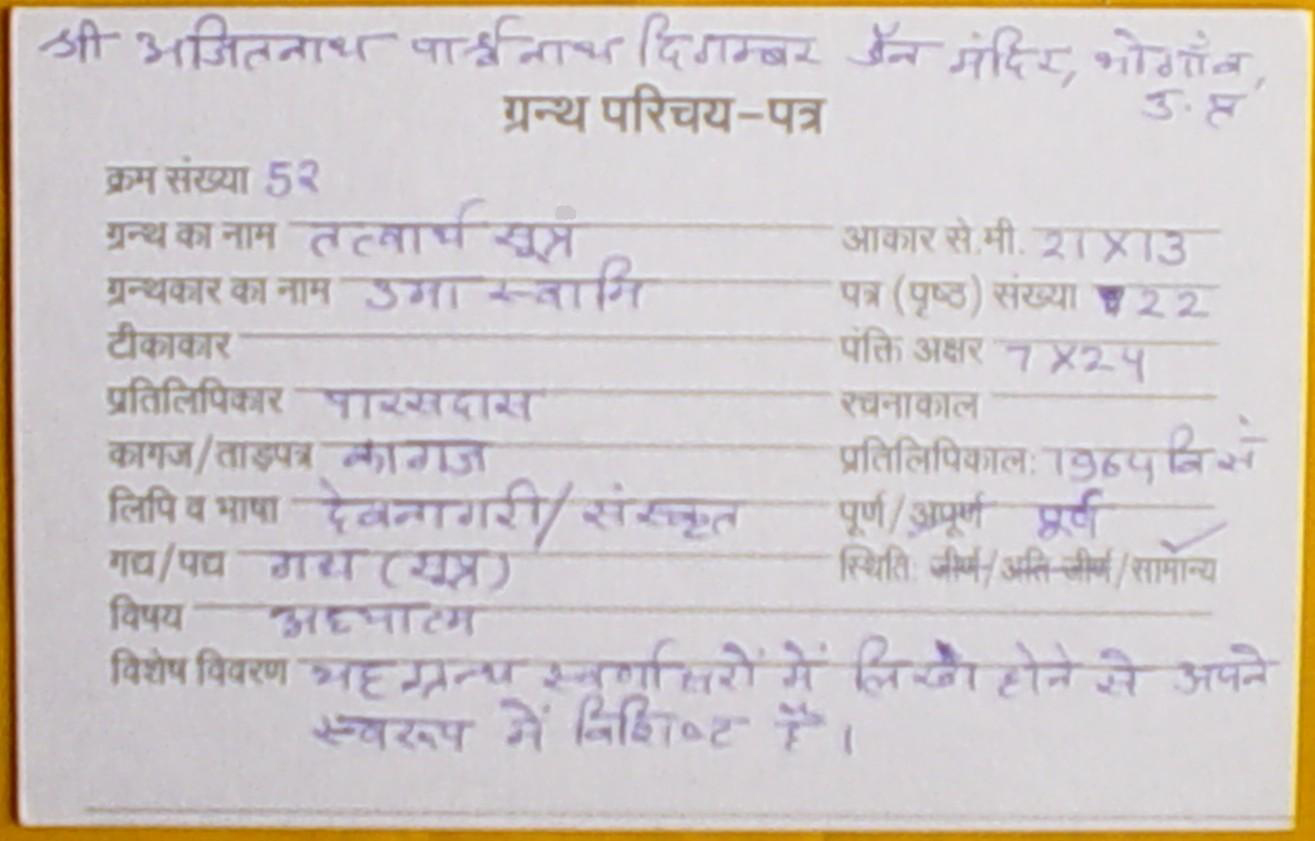 श्री अजितनाथ पार्श्वनाथ दिगम्बर जैन मंदिर, भोगाँव,
उ. प्र.
ग्रन्थ परिचय-पत्र
क्रम संख्या 52
ग्रन्थ का नाम तत्वार्थ सूत्र आकार से.मी. 21 X 13
ग्रन्थकार का नाम उमा स्वामि पत्र (पृष्ठ) संख्या 22
टीकाकार पंक्ति अक्षर 7 X 24
प्रतिलिपिकार पारसदास रचनाकाल
कागज/ताड़पत्र कागज प्रतिलिपिकाल: 1964 वि सं
लिपि व भाषा देवनागरी/संस्कृत पूर्ण/अपूर्ण पूर्ण
गद्य/पद्य गद्य (सूत्र) स्थिति: जीर्ण/अति जीर्ण/सामान्य ✓
विषय अध्यात्म
विशेष विवरण यह ग्रन्थ स्वर्णाक्षरों में लिखा होने से अपने
स्वरूप में विशिष्ट है।